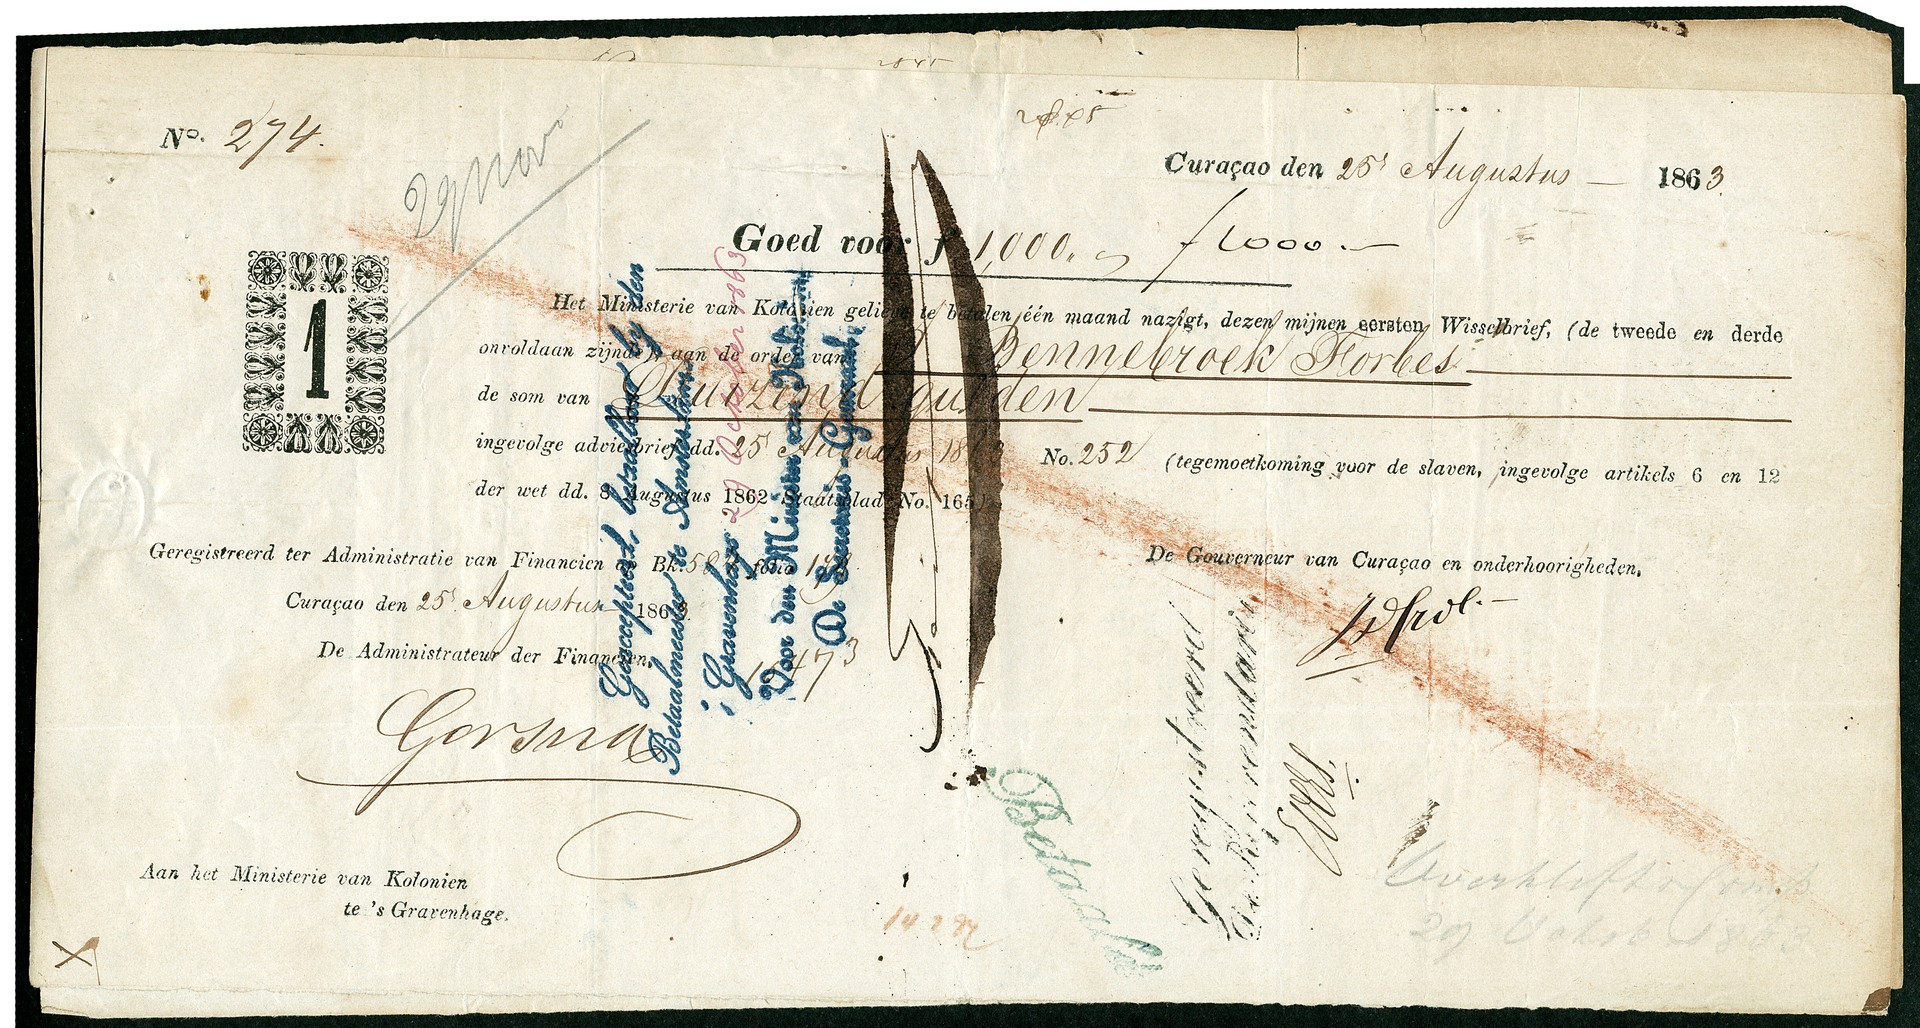 2845
No. 274.
29 Nov
Curaçao den 25 Augustus 1863
Goed voor f 1,000.
f 1000.-
1
Het Ministerie van Kolonien gelieve te betalen één maand nazigt, dezen mijnen eersten Wisselbrief, (de tweede en derde
onvoldaan zijnde), aan de order van Bennebroek Forbes
de som van Duizend gulden
ingevolge adviesbrief dd. 25 Augustus 1863 No. 252 (tegemoetkoming voor de slaven, ingevolge artikels 6 en 12
der wet dd. 8 Augustus 1862 Staatsblad No. 165).
Geregistreerd ter Administratie van Financien op Bk. folio
De Gouverneur van Curaçao en onderhoorigheden,
Curaçao den 25 Augustus 1863.
De Administrateur der Financien,
Gorsira
Geaccepteerd, betaalbaar bij den
Betaalmeester te Amsterdam
's Gravenhage 29 October 1863
Voor den Minister van Kolonien
De Secretaris-Generaal,
Betaald
Geregistreerd
Aan het Ministerie van Kolonien
te 's Gravenhage.